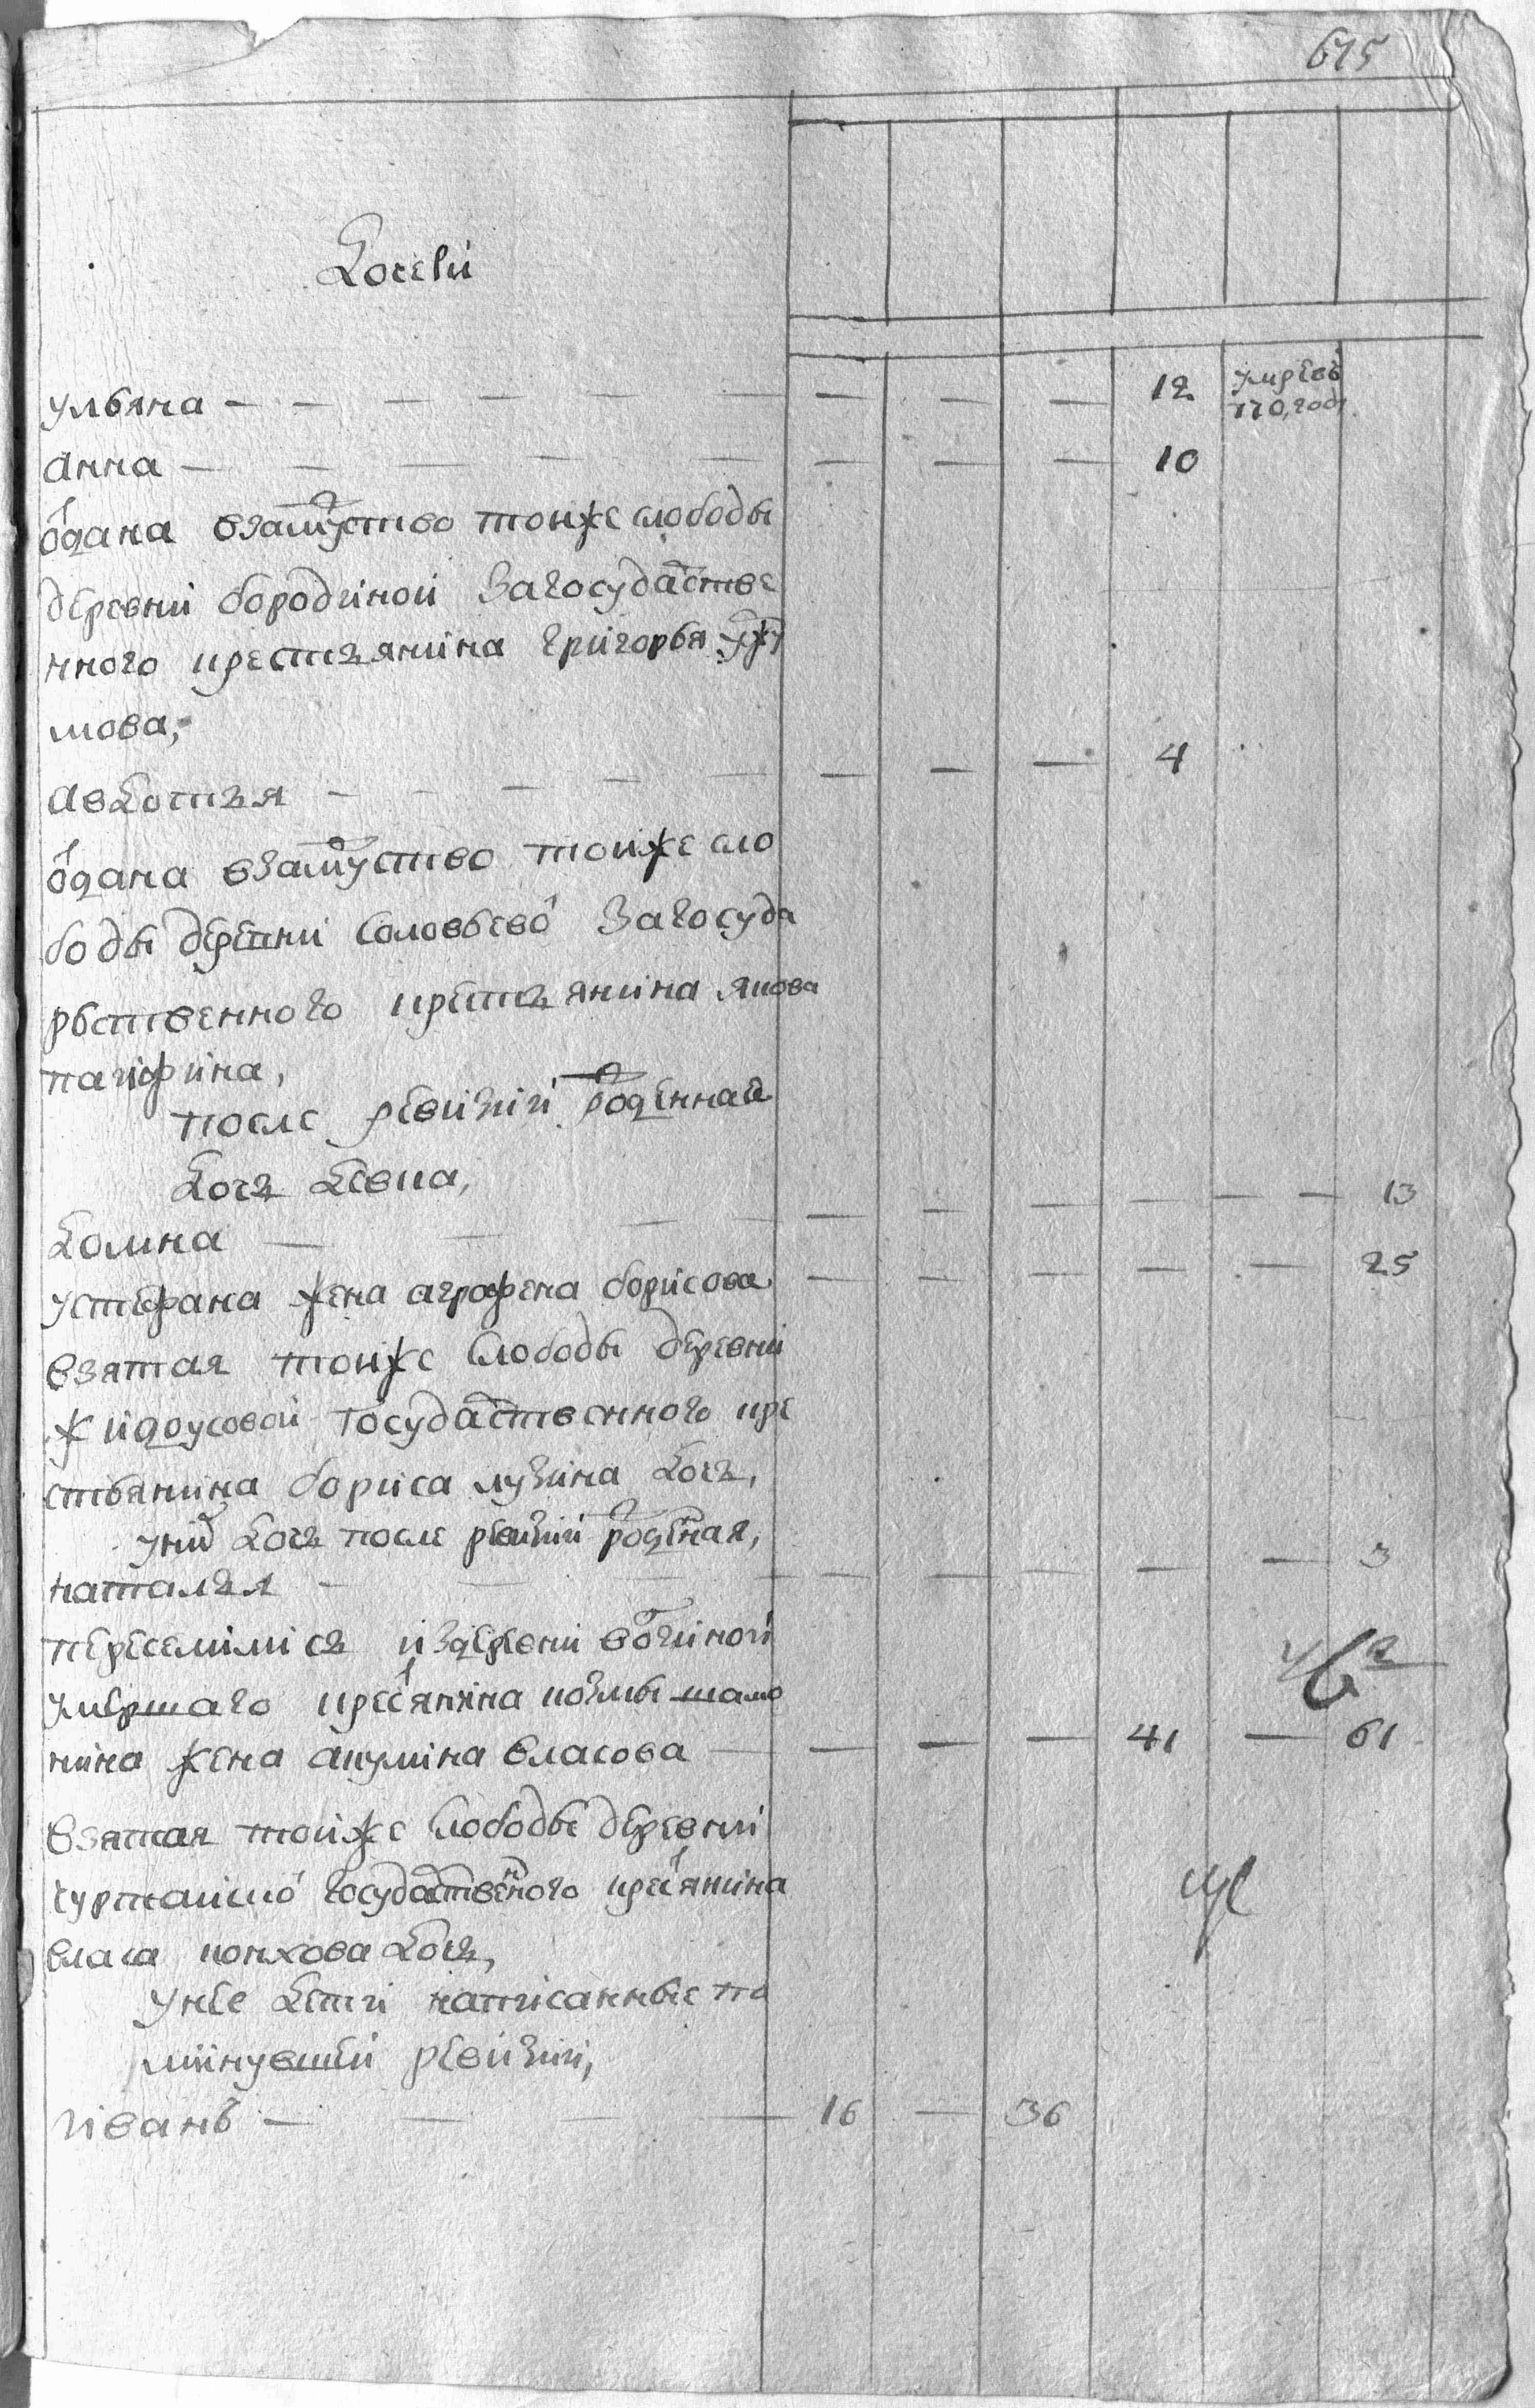 615
дочери
ульяна — — — — — — — — — 12 умре въ
770, годȣ
анна — — — — — — — — 10
ѿдана взамуство тойже слободы
деревни бородиной загосударстве
нного крестьянина григорья
мова,
авдотья — — — — — — — 4
ѿдана взамуство тойже сло
боды деревни соловьево загосуда
рственного крестьянина якова
панфина,
после ревизии рожденная
дочь девка,
домна — — — — — — — — — 13
устефана жена аграфена борисова — — — — — 25
взятая тойже слободы деревни
жидоусовой государственного кре
стьянина бориса лузина дочь,
уних дочь после ревизии рожденая,
наталья — — — — — — — — 3
переселились издеревни вотчиной
умершаго крестьянина козмы шамо
нина жена акулина власова — — — — 41 — 61
взятая тойже слободы деревни
государственного крестьянина
власа конхова дочь,
унее дети написанные по
минувшей ревизии,
иванъ — — — — 16 — 36